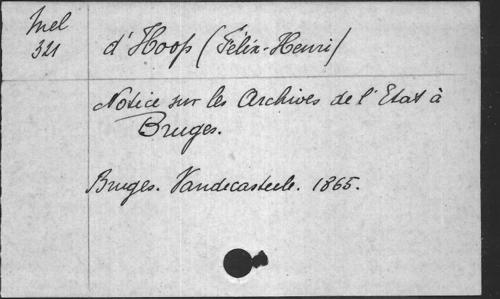 Mel
321
d'Hoop (Félix-Henri)
Notice sur les Archives de l'Etat à
Bruges.
Bruges. Vandecasteele. 1865.